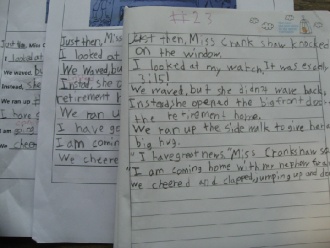 #23
Just then, Miss Crank show knocked
on the window.
I looked at my watch, It was exactly
3:15!
We waved, but she didn't wave back.
Instead, she opened the big front door
the retirement home.
We ran up the side walk to give her a
big hug.
"I have great news," Miss Crankshaw
"I am coming home with my nephew for
We cheered and clapped, jumping up and
Just then, Miss
I looked at
We waved, but
Instad, she
retirement h
We ran u
I have go
I am com
We cheer
Just then, Miss C
I looked at
We waved, b
Instead, she
We ran up
I have
I am
We chee